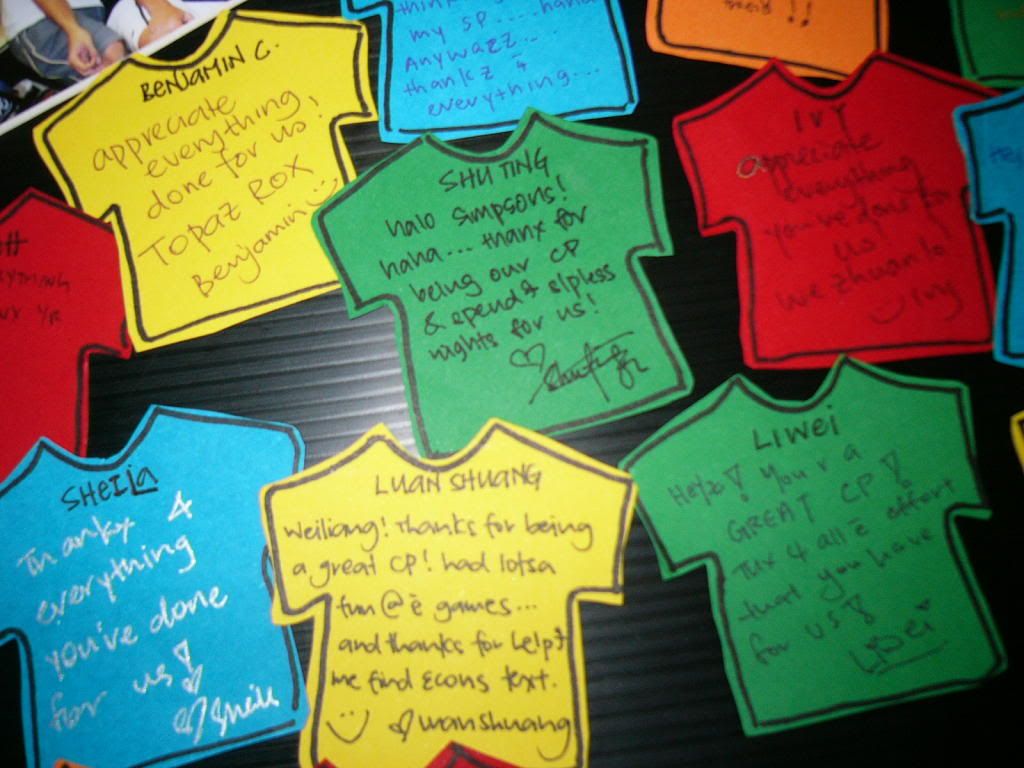 my sp.....haha
Anywazz...
thankz 4
everything...
!!
BENJAMIN C.
appreciate
everything
done for us!
TOPAZ ROX
Benjamin
SHU TING
halo simpsons!
haha... thanx for
being our CP
& spend & slpless
nights for us!
IVY
appreciate
everything
you've done for
us
we zhuan lo
Ivy
SHEILA
Thankx 4
everything
you've done
for us!
Sheila
LUAN SHUANG
Weiliang! Thanks for being
a great CP! had lotsa
fun @ ē games...
and thanks for help
me find Econs text.
Luanshuang
LIWEI
Heyz! You r a
GREAT CP!
TNX 4 all ē effort
that you have
for us!
Liwei